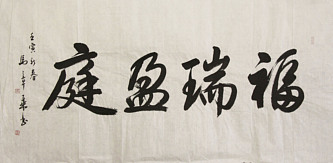 福瑞盈庭
壬寅新春